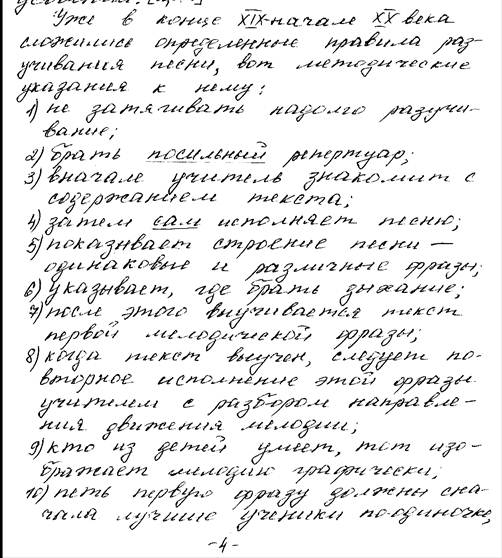 Уже в конце XIX-начале XX века
сложились определенные правила раз-
учивания песни, вот методические
указания к нему:
1) не затягивать надолго разучи-
вание;
2) брать посильный репертуар;
3) вначале учитель знакомит с
содержанием текста;
4) затем сам исполняет песню;
5) показывает строение песни —
одинаковые и различные фразы;
6) указывает, где брать дыхание;
7) после этого выучивается текст
первой мелодической фразы;
8) когда текст выучен, следует по-
вторное исполнение этой фразы
учителем с разбором направле-
ния движения мелодии;
9) кто из детей умеет, тот изо-
бражает мелодию графически;
10) петь первую фразу должны сна-
чала лучшие ученики по-одиночке,
-4-